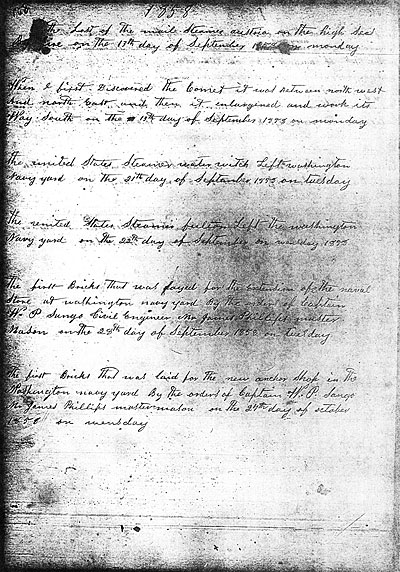 1858
the Lost of the mail Steamer austria on the high Sea
By fire on the 13th day of September monday
When I first Discovered the Comet it was between north west
And north East and then it enlargined and work its
Way South on the 13th day of September 1858 on monday
The united States Steamer water witch Left washington
Navy yard on the 21th day of September 1858 on tuesday
The united States Steamer fulton Left the washington
Navy yard on the 22th day of September on wensday 1858
The first Bricks that was layed for the extention of the naval
Store at washington navy yard By the orders of Captain
W. P. Sango Civil Engineer Mr James Phillips master
Mason on the 28th day of September 1858 on tuesday
The first Bricks that was laid for the new anchor Shop in the
Washington navy yard By the orders of Captain W. P. Sango
Mr James Phillips master mason on the 27th day of october
1858 on wensday